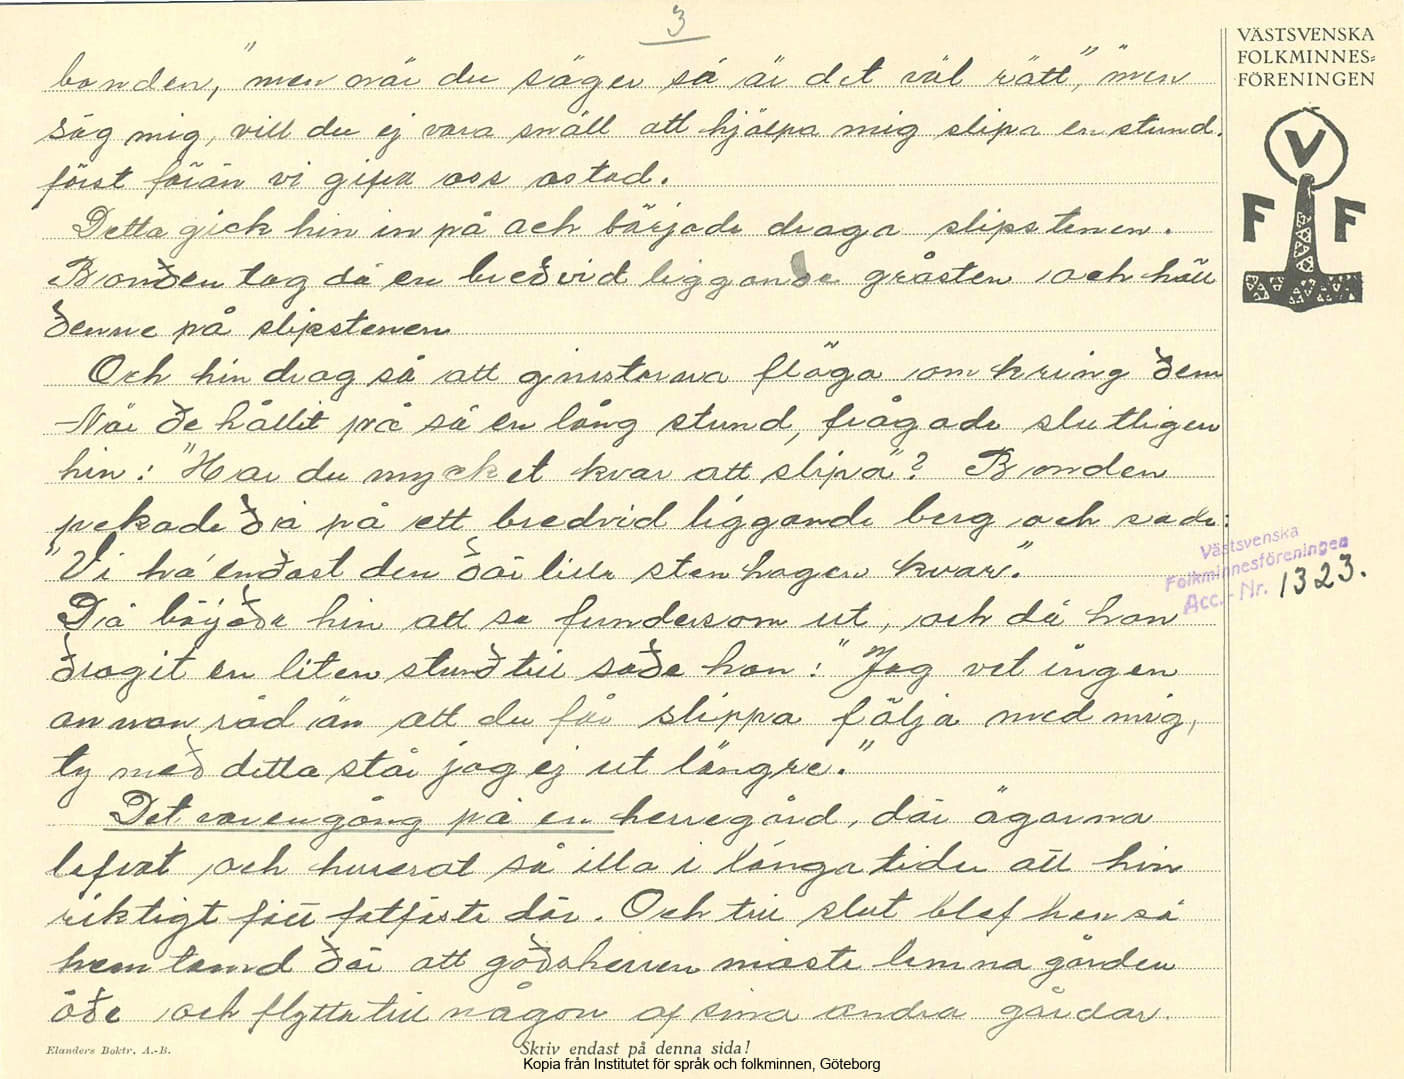 3
VÄSTSVENSKA
FOLKMINNES=
FÖRENINGEN
V
F F
bonden, "men när du säger så är det väl rätt", "men
säg mig, vill du ej vara snäll att hjälpa mig slipa en stund.
först förän vi gifva oss astad.
Detta gick hin in på och började draga slipstenen.
Bonden tog då en bredvid liggande gråsten och höll
denne på slipstenen
Och hin drog så att gnistorna flöga omkring dem
När de hållit på så en lång stund, frågade slutligen
hin: "Har du mycket kvar att slipa"? Bonden
pekade då på ett bredvid liggande berg och sade:
"Vi ha' endast den där lilla stenhagen kvar".
Då böjade hin att se fundersom ut, och då han
dragit en liten stund till sade han: "Jag vet ingen
annan råd än att du får slippa följa med mig,
ty med detta står jag ej ut längre."
Det var en gång på en herregård, där ägarna
lefvat och huserat så illa i långa tider att hin
riktigt fått fotfäste där. Och till slut blef han så
hemtamd där att godsherren måste lemna gården
öde och flytta till någon af sina andra gårdar.
Västsvenska
Folkminnesföreningen
Acc.-Nr. 1323.
Elanders Boktr. A.-B.
Skriv endast på denna sida!
Kopia från Institutet för språk och folkminnen, Göteborg